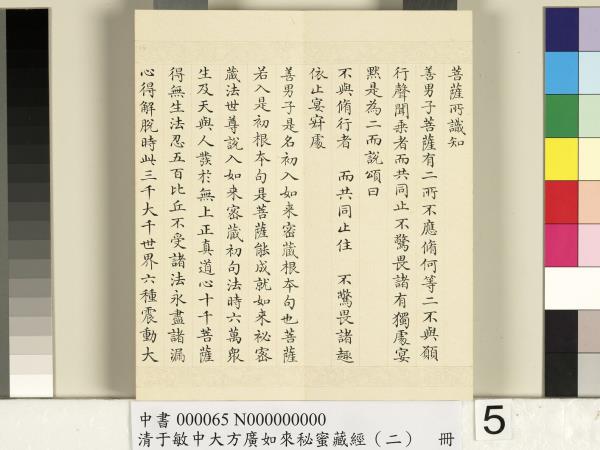 菩薩所識知
善男子菩薩有二所不應脩何等二不與願
行聲聞乘者而共同止不驚畏諸有獨處宴
黙是為二而說頌曰
不與脩行者　而共同止住　不驚畏諸趣
依止宴寂處
善男子是名初入如来密藏根本句也菩薩
若入是初根本句是菩薩能成就如来秘密
藏法世尊說入如来密藏初句法時六萬衆
生及天與人發於無上正真道心十千菩薩
得無生法忍五百比丘不受諸法永盡諸漏
心得解脫時此三千大千世界六種震動大
中書 000065 N000000000
清于敏中大方廣如來秘蜜藏經（二）　冊
5